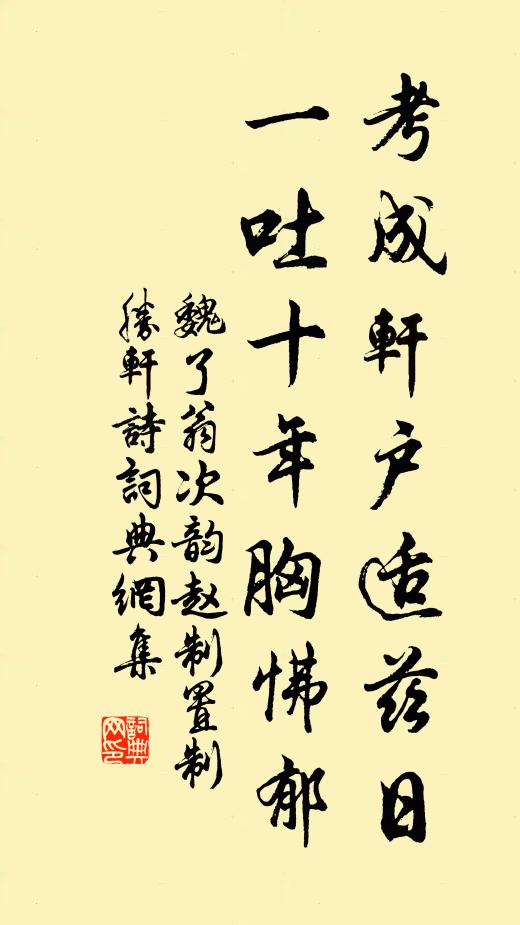 考成軒户适茲日
一吐十年胸怫郁
魏了翁次韵赵制置制
勝軒詩詞典網集
詞典
网印